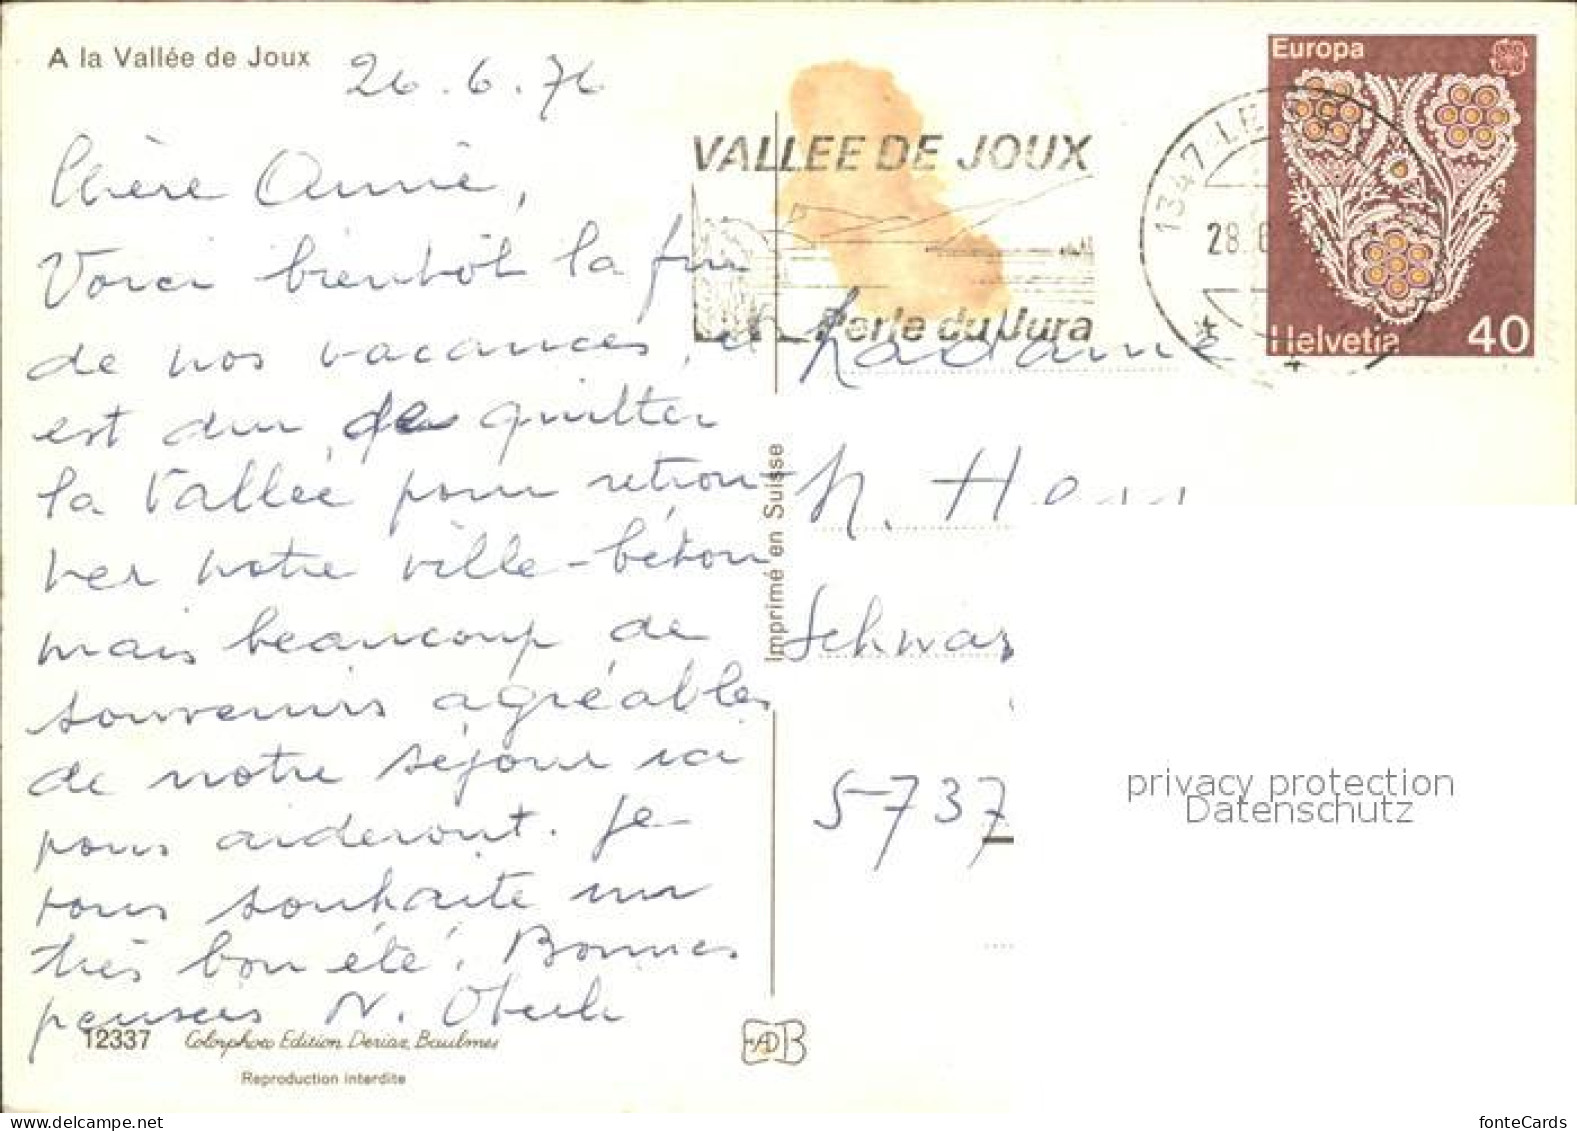 A la Vallée de Joux
26.6.76
Chère Annie,
Voici bientôt la fin
de nos vacances, il
est dur de quitter
la Vallée pour retrou-
ver notre ville-béton
mais beaucoup de
souvenirs agréables
de notre séjour ici
nous aideront. Je
vous souhaite un
très bon été. Bonnes
pensées N. Oberli
12337 Colorphoto Edition Deriaz, Baulmes
Reproduction interdite
Imprimé en Suisse
VALLEE DE JOUX
Perle du Jura
1347 LE
28.6
Europa
Helvetia 40
Madame
N. H
Schwarz
5737
EADB
privacy protection
Datenschutz
delcampe.net
fonteCards